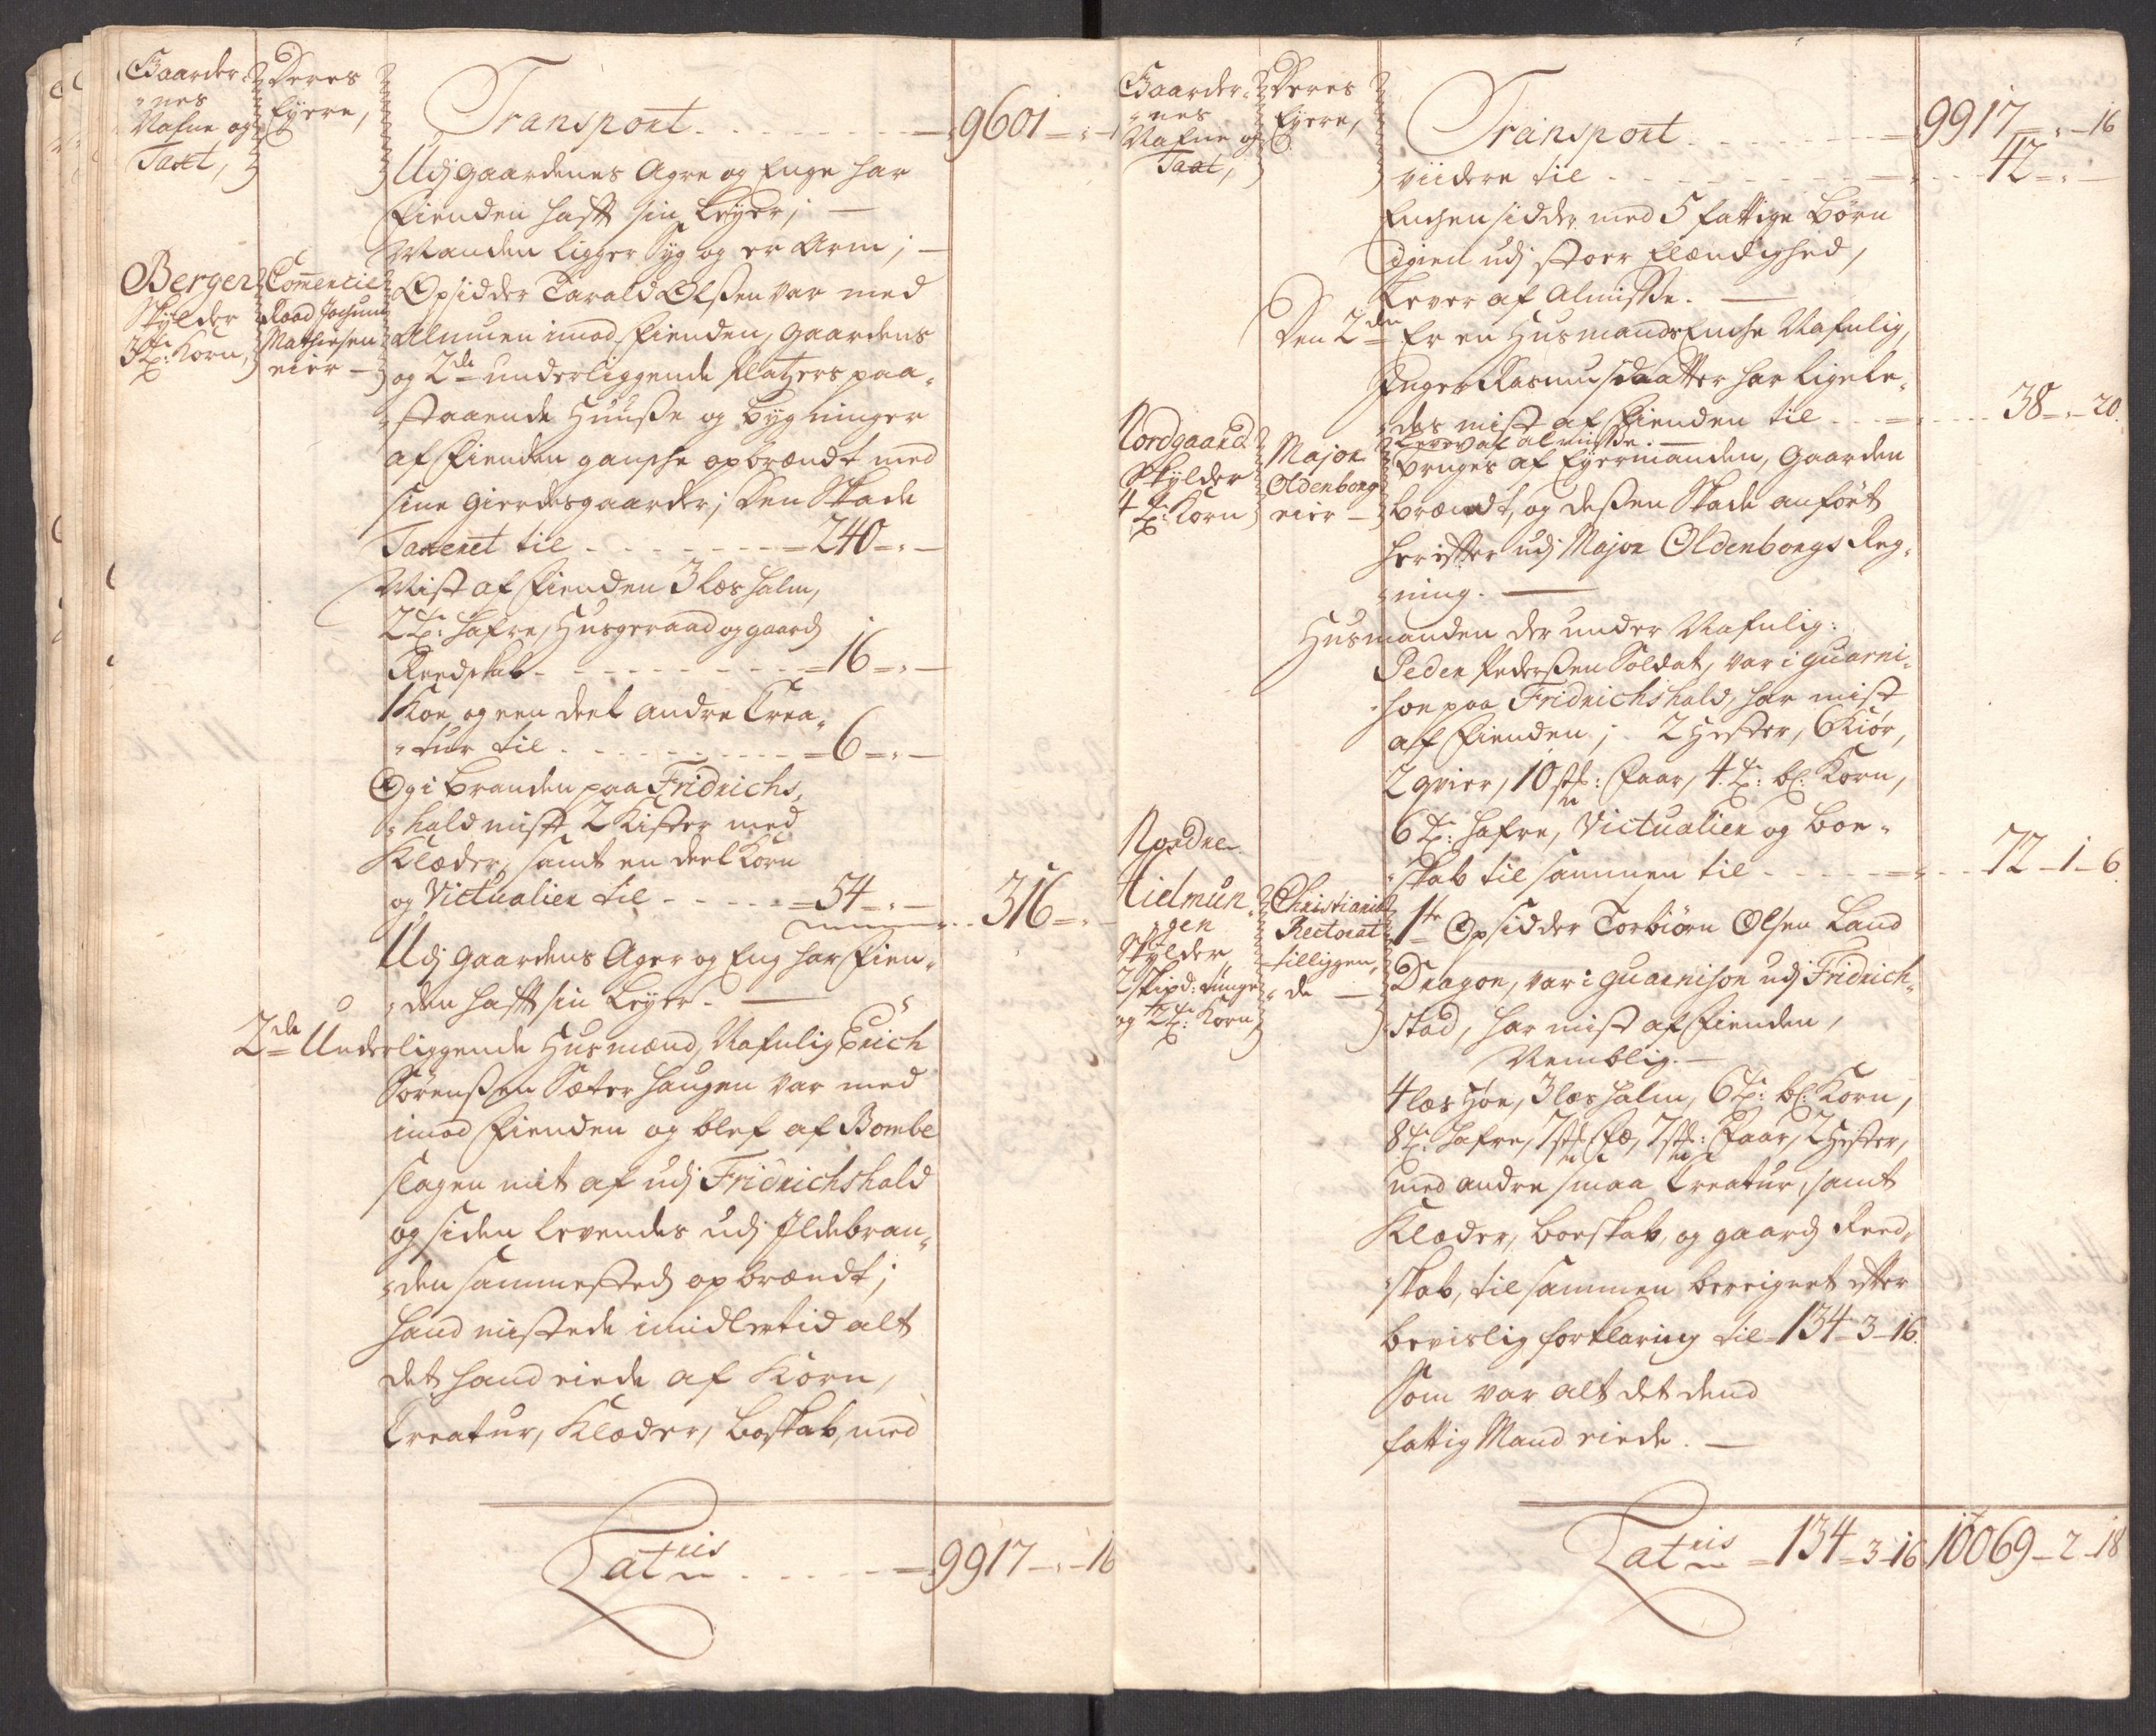 Gaarder-
nes
Nafne og
Taxt,
Deres
Eyere,
Transport - - - - 9601 - " -
Udj gaardenes Agre og Enge har
Fienden hafft sin Leyer; -
Manden ligger Syg og er Arm; -
Bergen
Skylder
3 T: Korn,
Com̄ercie
Raad Jochum
Mathiesen
eier -
Opsidder Tarald Olßen var med
Almuen imod Fienden, gaardens
og 2de underliggende Platzers paa-
staaende Huuße og bygninger
af Fienden gansche opbrændt med
sine gierdesgaarder; Den Skade
Taxeret til - - - - 240 - " -
Mist af Fienden 3 læs halm,
2 T: hafre, Husgeraad og gaards
Reedskab - - - - 16 - " -
1 Koe og een deel andre Crea-
tur til - - - - 6 - " -
Og i branden paa Fridrichs-
hald mist 2 Kister med
Klæder, samt en deel Korn
og Victualier til - - - - 54 - " - 316 - " -
Udj gaardens Ager og Eng har Fien-
den hafft sin Leyer. -
2de Underliggende Husmænd, Nafnlig Erich
Sørenßen Sæterhaugen var med
imod Fienden og blef af Bombe
slagen mit af udj Fridrichshald
og siden levendes udj Ildebran-
den sammesteds opbrændt;
hand mistede imidlertid alt
det hand eiede af Korn,
Creatur, Klæder, boskab, med
Latus - - - - 9917 - " - 16
Gaarder-
nes
Nafne og
Taxt,
Deres
Eyere,
Transport - - - - 9917 - " - 16
viidere til - - - - 42 - " -
Enchen sidder med 5 fattige Børn
igien udj stoer Elændighed,
Lever af Almisse. -
Den 2den Er en Husmands Enche Nafnlig,
Inger Rasmusdaatter har ligele-
des mist af Fienden til - - - - 38 - " - 20.
Lever af almisse. -
Nordgaard
Skylder
4 T: Korn
Major
Oldenborg
eier -
bruges af Eyermanden, Gaarden
brændt, og deßen Skade anført
herefter udj Major Oldenborgs Reg-
ning. -
Husmanden der under Nafnlig:
Peder Pederßen Soldat, var i guarni-
son paa Fridrichshald, har mist
af Fienden; 2 Hester, 6 Kiør,
2 qvier, 10 stk: Faar, 4 T: bl: Korn,
6 T: hafre, Victualier og boe-
skab til sammen til - - - - 72 - 1 - 6.
Nordre
Hielmun-
gen
Skylder
2 Skipd: tunge
og 2 T: Korn
Christianiæ
Rectorat
tilliggen-
de -
1te Opsidder Torbiørn Olsen Land
Dragon, var i guarnison udj Fridrich-
stad, har mist af Fienden,
Nemblig. -
4 læs Høe, 3 læs halm, 6 T: bl: Korn,
8 T: hafre, 7 stk: Fæ, 7 stk: Faar, 2 Hester,
med andre smaa Creatur, samt
Klæder, boeskab, og gaards Reed-
skab, til sammen bereignet efter
bevislig forklaring til - 134 - 3 - 16.
Som var alt det dend
fattig Mand eiede. -
Latus - 134 - 3 - 16 10069 - 2 - 18